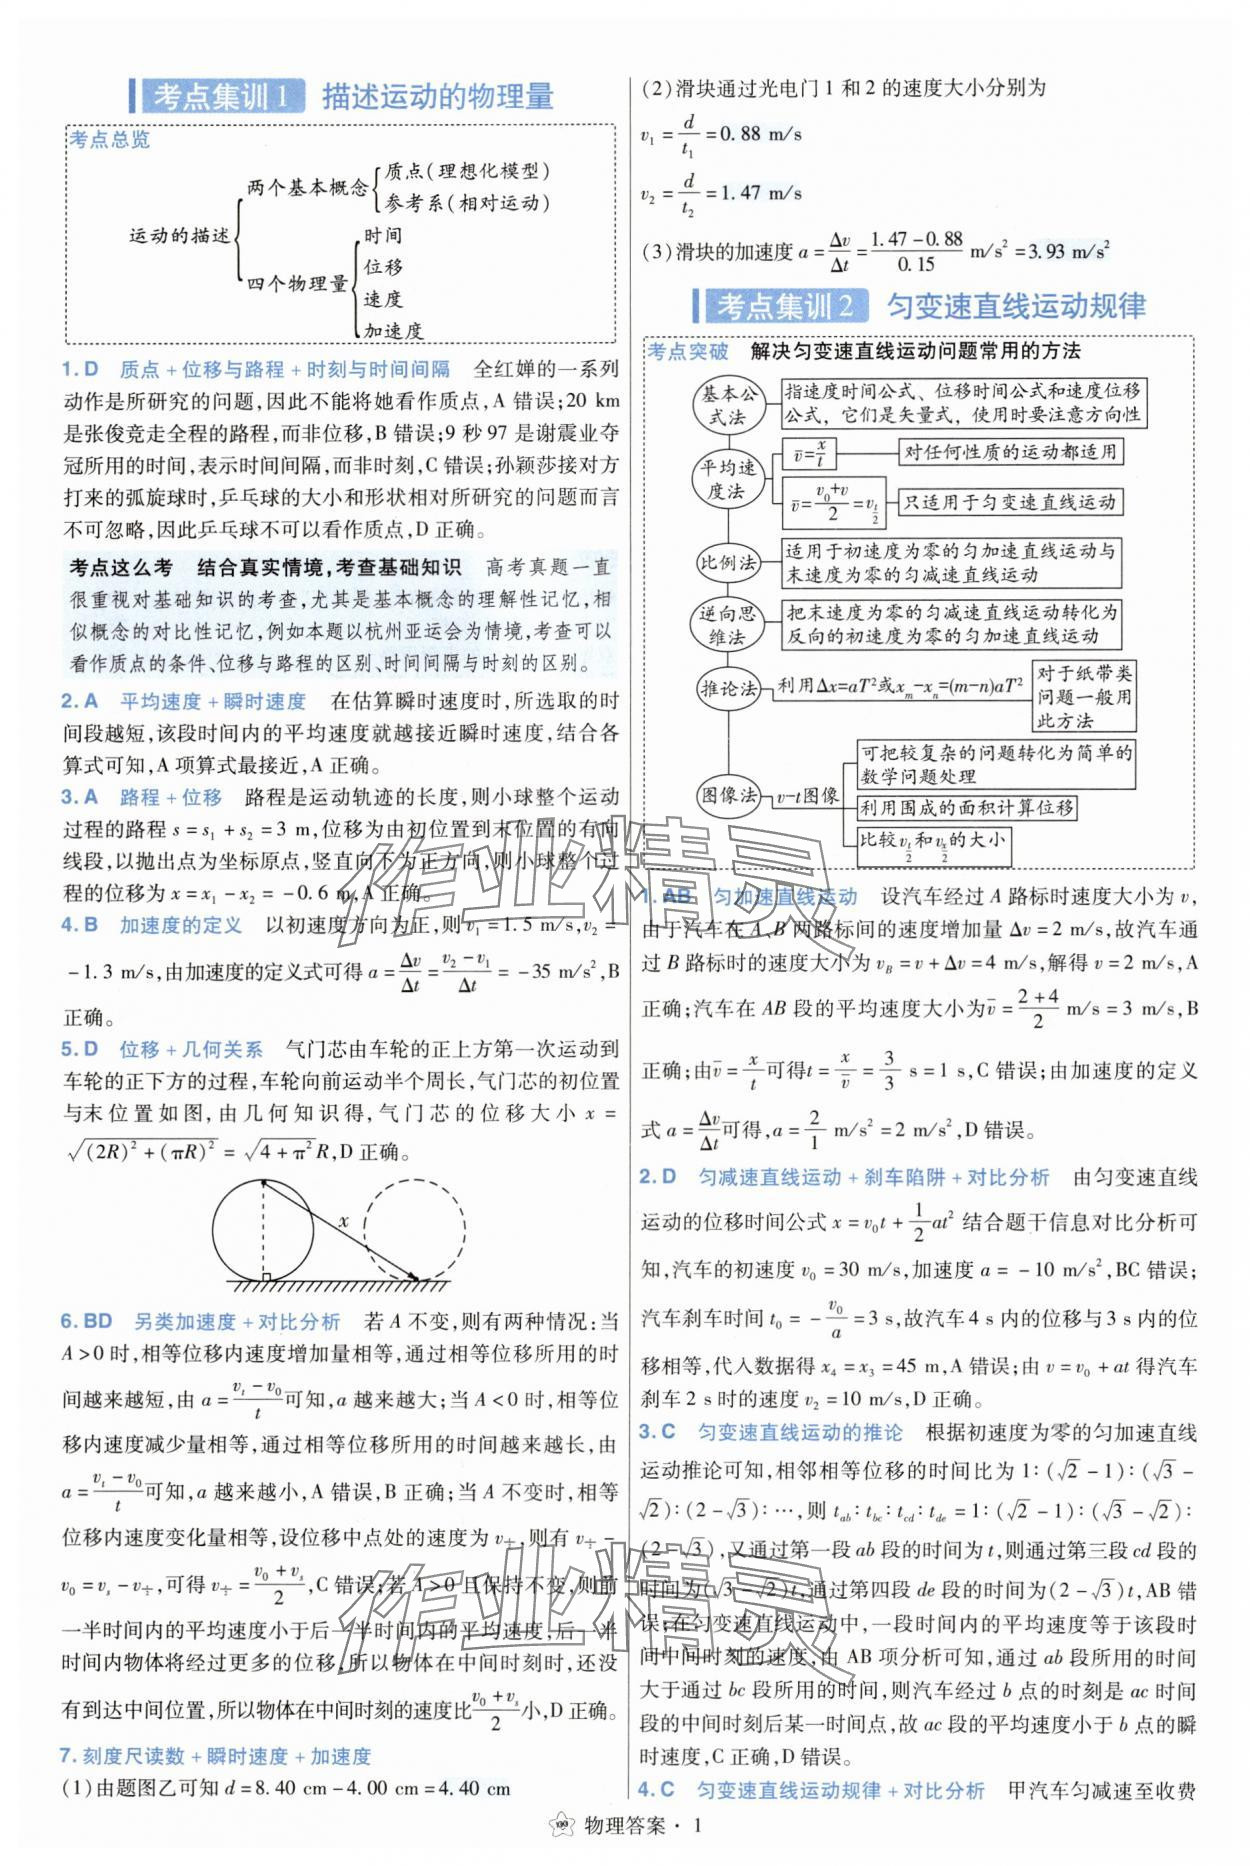 考点集训1 描述运动的物理量
考点总览
运动的描述
两个基本概念
质点(理想化模型)
参考系(相对运动)
四个物理量
时间
位移
速度
加速度
1.D 质点+位移与路程+时刻与时间间隔 全红婵的一系列
动作是所研究的问题,因此不能将她看作质点,A 错误;20 km
是张俊竞走全程的路程,而非位移,B 错误;9 秒 97 是谢震业夺
冠所用的时间,表示时间间隔,而非时刻,C 错误;孙颖莎接对方
打来的弧旋球时,乒乓球的大小和形状相对所研究的问题而言
不可忽略,因此乒乓球不可以看作质点,D 正确。
考点这么考 结合真实情境,考查基础知识 高考真题一直
很重视对基础知识的考查,尤其是基本概念的理解性记忆,相
似概念的对比性记忆,例如本题以杭州亚运会为情境,考查可以
看作质点的条件、位移与路程的区别、时间间隔与时刻的区别。
2.A 平均速度+瞬时速度 在估算瞬时速度时,所选取的时
间段越短,该段时间内的平均速度就越接近瞬时速度,结合各
算式可知,A 项算式最接近,A 正确。
3.A 路程+位移 路程是运动轨迹的长度,则小球整个运动
过程的路程 s = s₁ + s₂ = 3 m,位移为由初位置到末位置的有向
线段,以抛出点为坐标原点,竖直向下为正方向,则小球整个过
程的位移为 x = x₁ - x₂ = -0.6 m,A 正确。
4.B 加速度的定义 以初速度方向为正,则 v₁ = 1.5 m/s,v₂ =
-1.3 m/s,由加速度的定义式可得 a = Δv/Δt = (v₂ - v₁)/Δt = -35 m/s²,B
正确。
5.D 位移+几何关系 气门芯由车轮的正上方第一次运动到
车轮的正下方的过程,车轮向前运动半个周长,气门芯的初位置
与末位置如图,由几何知识得,气门芯的位移大小 x =
√((2R)² + (πR)²) = √(4 + π²)R,D 正确。
x
6.BD 另类加速度+对比分析 若 A 不变,则有两种情况:当
A > 0 时,相等位移内速度增加量相等,通过相等位移所用的时
间越来越短,由 a = (vₜ - v₀)/t 可知,a 越来越大;当 A < 0 时,相等位
移内速度减少量相等,通过相等位移所用的时间越来越长,由
a = (vₜ - v₀)/t 可知,a 越来越小,A 错误,B 正确;当 A 不变时,相等
位移内速度变化量相等,设位移中点处的速度为 v中,则有 v中 -
v₀ = vₛ - v中,可得 v中 = (v₀ + vₛ)/2,C 错误;若 A > 0 且保持不变,则前
一半时间内的平均速度小于后一半时间内的平均速度,后一半
时间内物体将经过更多的位移,所以物体在中间时刻时,还没
有到达中间位置,所以物体在中间时刻的速度比 (v₀ + vₛ)/2 小,D 正确。
7.刻度尺读数+瞬时速度+加速度
(1)由题图乙可知 d = 8.40 cm - 4.00 cm = 4.40 cm
(2)滑块通过光电门 1 和 2 的速度大小分别为
v₁ = d/t₁ = 0.88 m/s
v₂ = d/t₂ = 1.47 m/s
(3)滑块的加速度 a = Δv/Δt = (1.47 - 0.88)/0.15 m/s² = 3.93 m/s²
考点集训2 匀变速直线运动规律
考点突破 解决匀变速直线运动问题常用的方法
基本公式法
指速度时间公式、位移时间公式和速度位移
公式,它们是矢量式,使用时要注意方向性
平均速度法
v̄ = x/t
对任何性质的运动都适用
v̄ = (v₀+v)/2 = v_(t/2)
只适用于匀变速直线运动
比例法
适用于初速度为零的匀加速直线运动与
末速度为零的匀减速直线运动
逆向思维法
把末速度为零的匀减速直线运动转化为
反向的初速度为零的匀加速直线运动
推论法
利用Δx=aT²或xₘ-xₙ=(m-n)aT²
对于纸带类
问题一般用
此方法
图像法
v-t图像
可把较复杂的问题转化为简单的
数学问题处理
利用围成的面积计算位移
比较v_(t/2)和v_(x/2)的大小
1.AB 匀加速直线运动 设汽车经过 A 路标时速度大小为 v,
由于汽车在 A、B 两路标间的速度增加量 Δv = 2 m/s,故汽车通
过 B 路标时的速度大小为 v_B = v + Δv = 4 m/s,解得 v = 2 m/s,A
正确;汽车在 AB 段的平均速度大小为 v̄ = (2+4)/2 m/s = 3 m/s,B
正确;由 v̄ = x/t 可得 t = x/v̄ = 3/3 s = 1 s,C 错误;由加速度的定义
式 a = Δv/Δt 可得,a = 2/1 m/s² = 2 m/s²,D 错误。
2.D 匀减速直线运动+刹车陷阱+对比分析 由匀变速直线
运动的位移时间公式 x = v₀t + 1/2 at² 结合题干信息对比分析可
知,汽车的初速度 v₀ = 30 m/s,加速度 a = -10 m/s²,BC 错误;
汽车刹车时间 t₀ = -v₀/a = 3 s,故汽车 4 s 内的位移与 3 s 内的位
移相等,代入数据得 x₄ = x₃ = 45 m,A 错误;由 v = v₀ + at 得汽车
刹车 2 s 时的速度 v₂ = 10 m/s,D 正确。
3.C 匀变速直线运动的推论 根据初速度为零的匀加速直线
运动推论可知,相邻相等位移的时间比为 1∶(√2 - 1)∶(√3 -
√2)∶(2 - √3)∶…,则 t_ab∶t_bc∶t_cd∶t_de = 1∶(√2 - 1)∶(√3 - √2)∶
(2 - √3),又通过第一段 ab 段的时间为 t,则通过第三段 cd 段的
时间为(√3 - √2)t,通过第四段 de 段的时间为(2 - √3)t,AB 错
误;在匀变速直线运动中,一段时间内的平均速度等于该段时
间中间时刻的速度,由 AB 项分析可知,通过 ab 段所用的时间
大于通过 bc 段所用的时间,则汽车经过 b 点的时刻是 ac 时间
段的中间时刻后某一时间点,故 ac 段的平均速度小于 b 点的瞬
时速度,C 正确,D 错误。
4.C 匀变速直线运动规律+对比分析 甲汽车匀减速至收费
作业精灵
作业精灵
物理答案·1